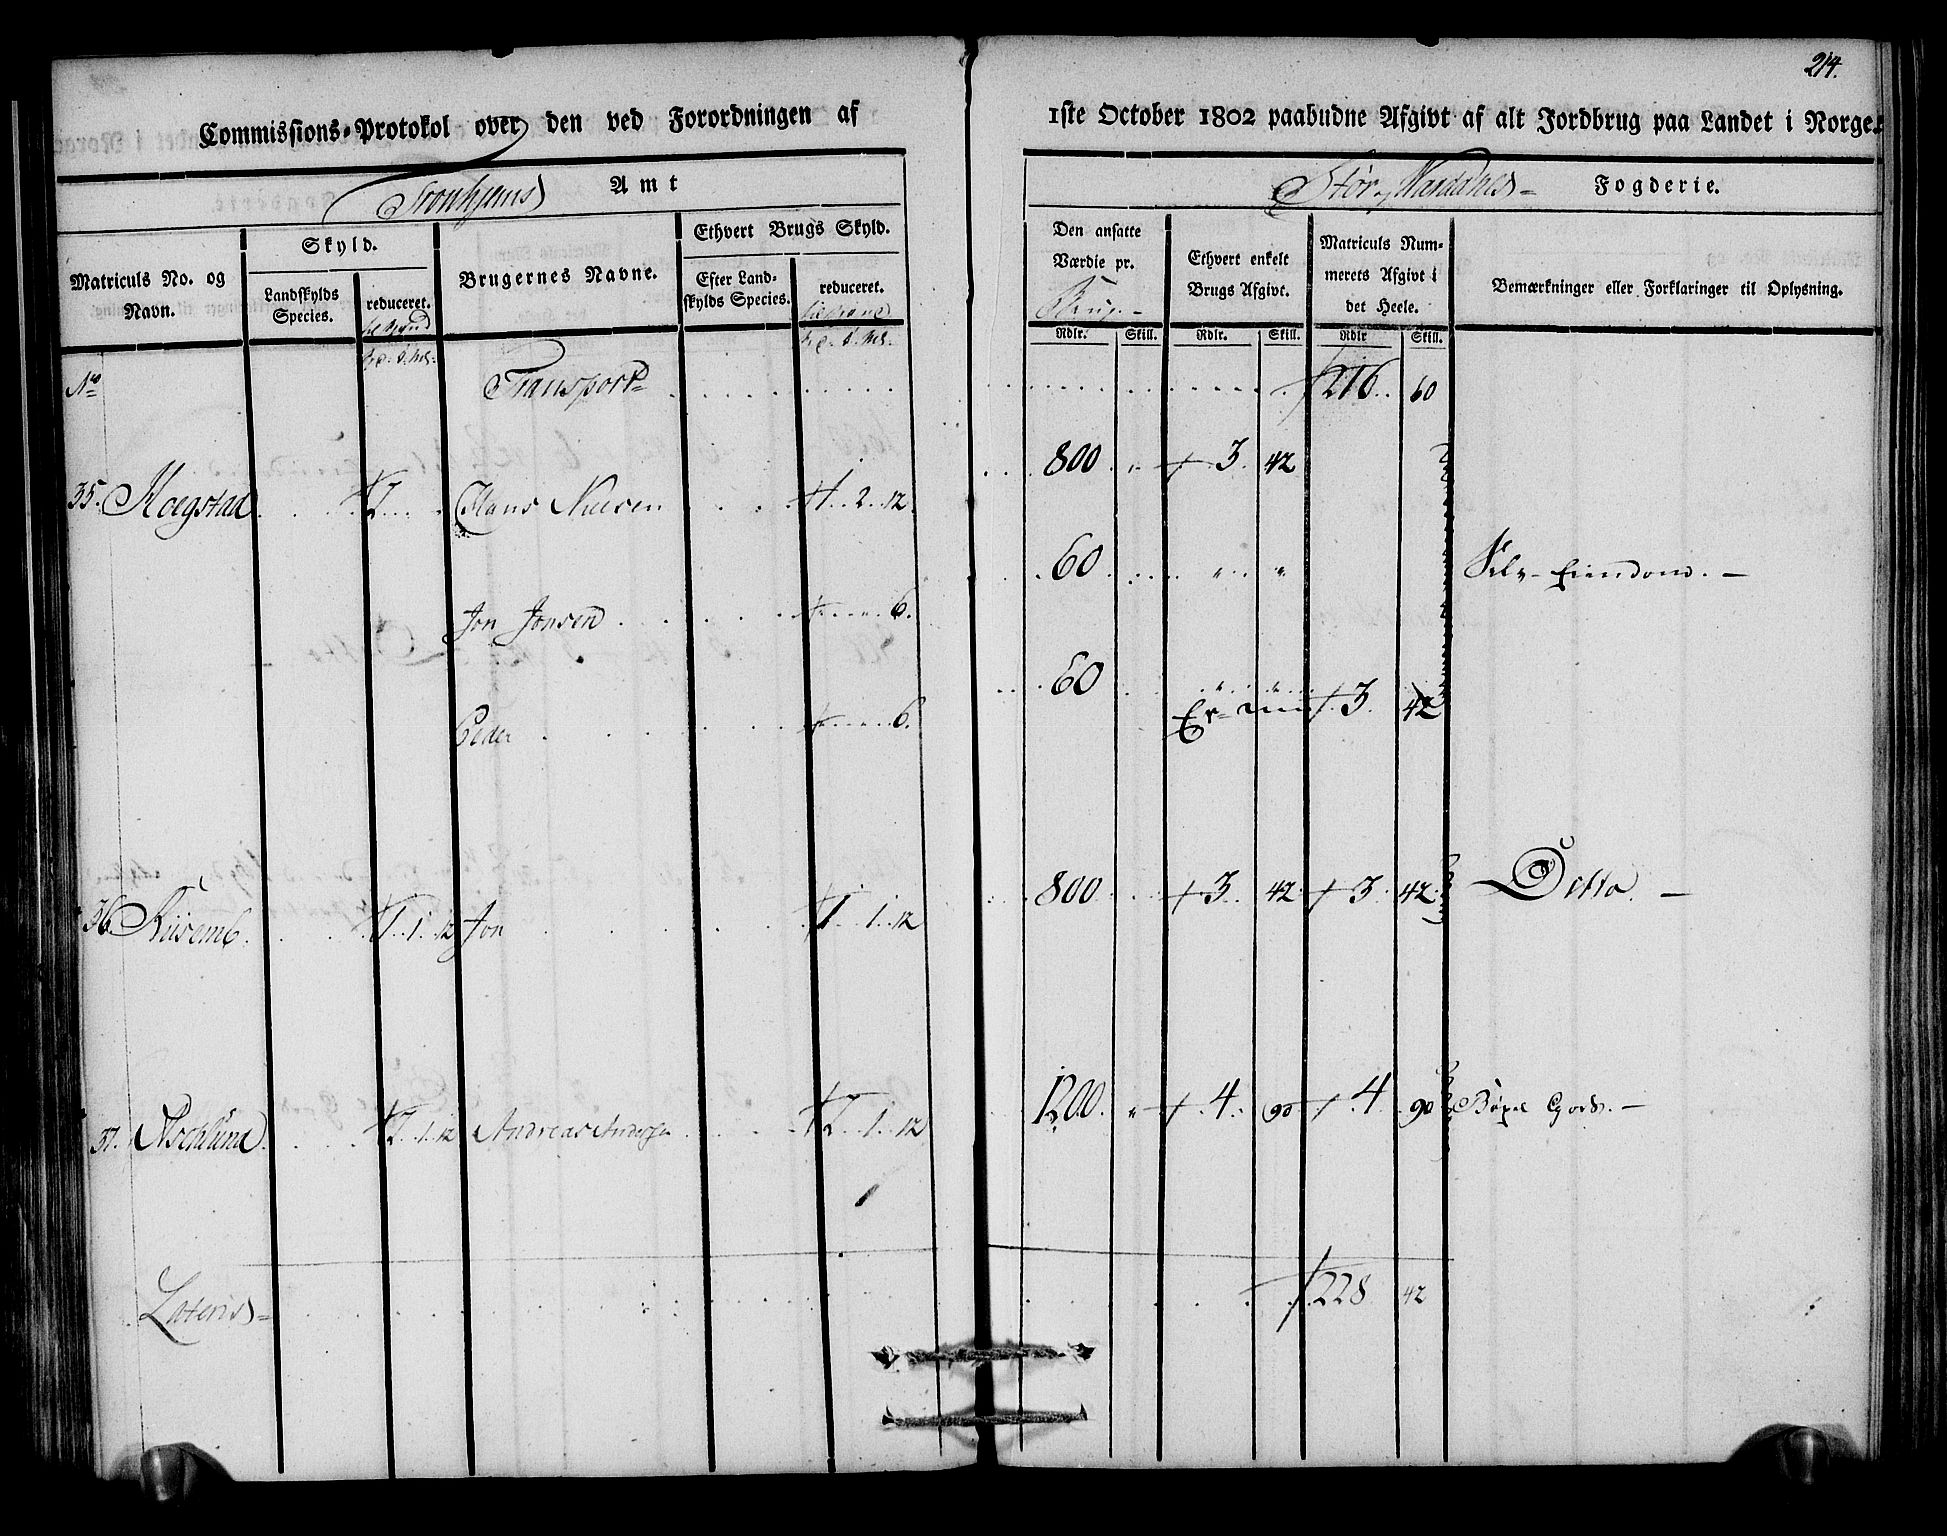 214.
Commissions-Protokol over den ved Forordningen af 1ste October 1802 paabudne Afgivt af alt Jordbrug paa Landet i Norge.
Tronhjems Amt
Stør og Værdahles Fogderie.
Matriculs No. og Navn.
Skyld.
Landskylds Species.
reduceret.
Brugernes Navne.
Ethvert Brugs Skyld.
Efter Landskylds Species.
reduceret.
Den ansatte Værdie pr. Brug
Rdlr. Skill.
Ethvert enkelt Brugs Afgivt.
Rdlr. Skill.
Matriculs Nummerets Afgivt i det Heele.
Rdlr Skill.
Bemærkninger eller Forklaringer til Oplysning.
No Transport 216. 60
35. Moegstad 2 Hans Nielsen 1. 2. 12. 800 3. 42
Jon Jonsen 6. 60 Selv-Eiendom.
Peder 6. 60 Er 3. 42
36. 1. 1. 12 Jon 1. 1. 12 800 3. 42 3. 42. Ditto.
37. 2. 1. 12 Andreas 2. 1. 12 1200. 4. 90 4. 90 Gods.
Lateris 228 42